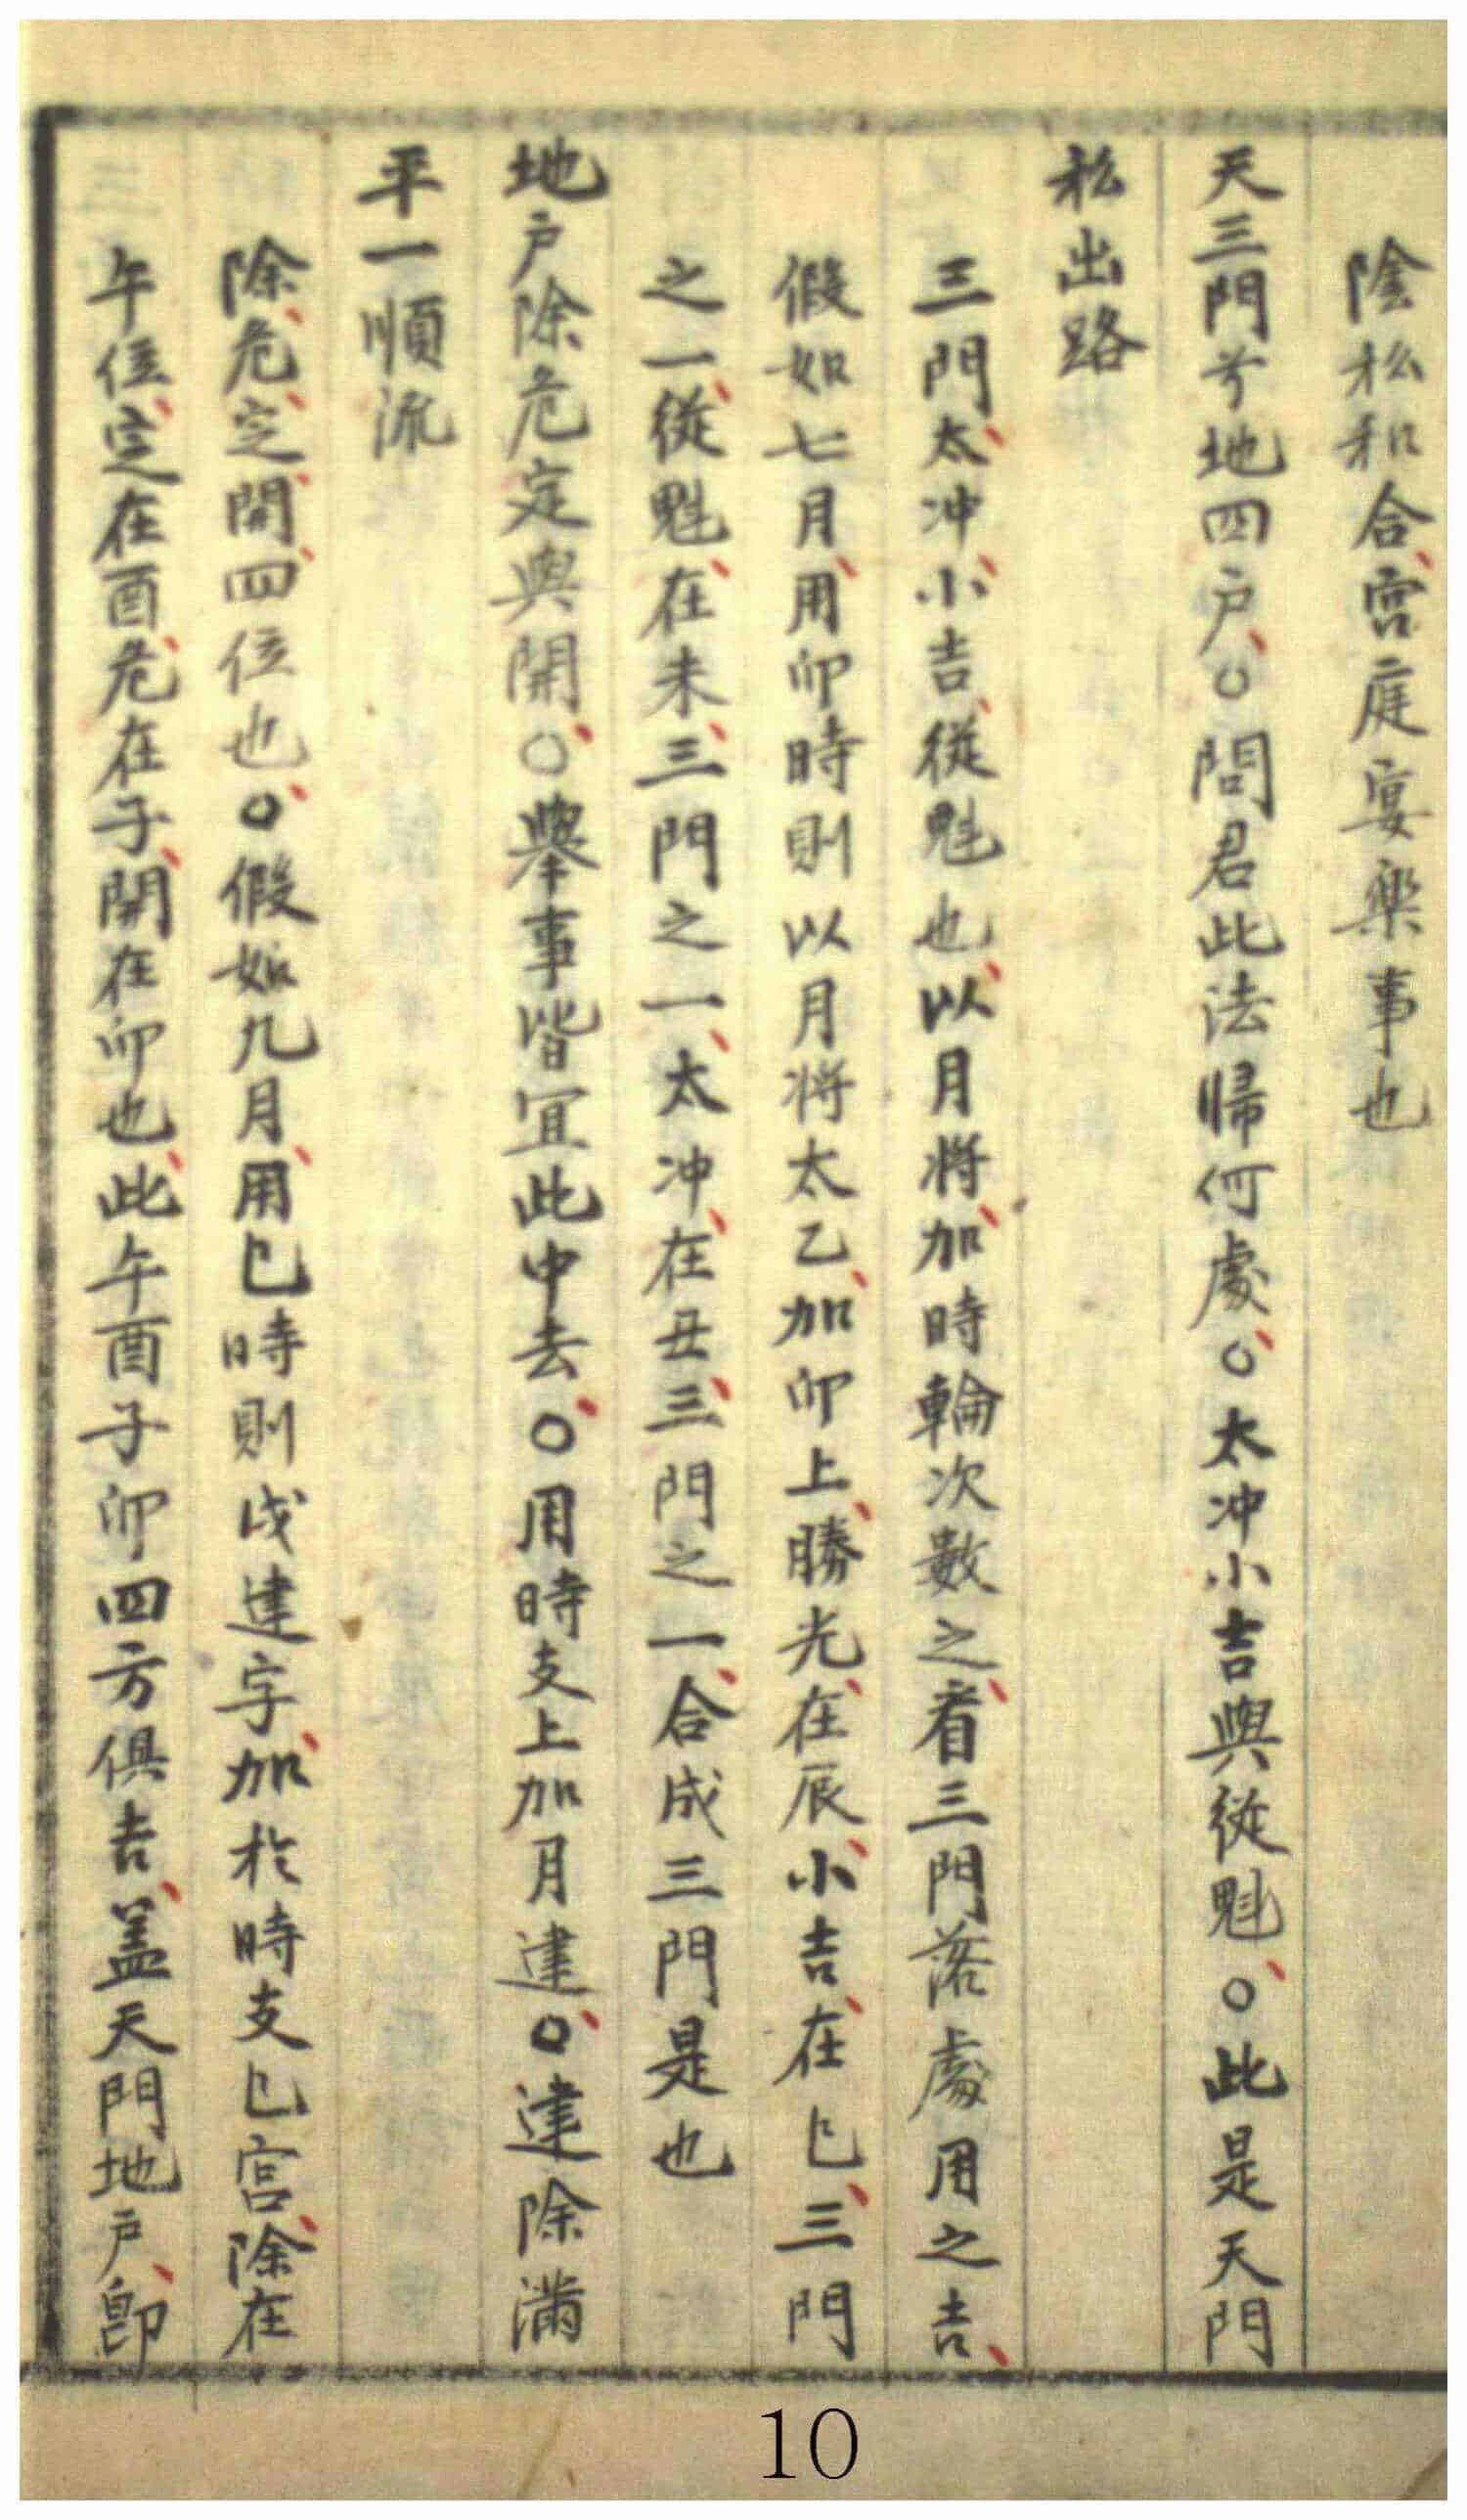 陰私和合、宮庭宴樂事也
天三門兮地四户、○問君此法歸何處、○太冲小吉與從魁、○此是天門
私出路
三門太、冲小、吉從、魁也、以月將加、時輪次數之、看三門落處用之吉、
假如七月、用卯時則以月將太乙、加卯上、勝光、在辰、小吉、在巳、三門
之一、從魁、在未、三門之一、太冲、在丑、三門之一、合成三門是也
地户除危定與開、○舉事皆宜此中去、○用時支上加月建、○建除滿
平一順流
除、危、定、開、四位也、○假如九月、用巳時則戌建字、加於時支巳宮、除在
午位、定在酉、危在子、開在卯也、此午酉子卯四方俱吉、盖天門地户、卽
10